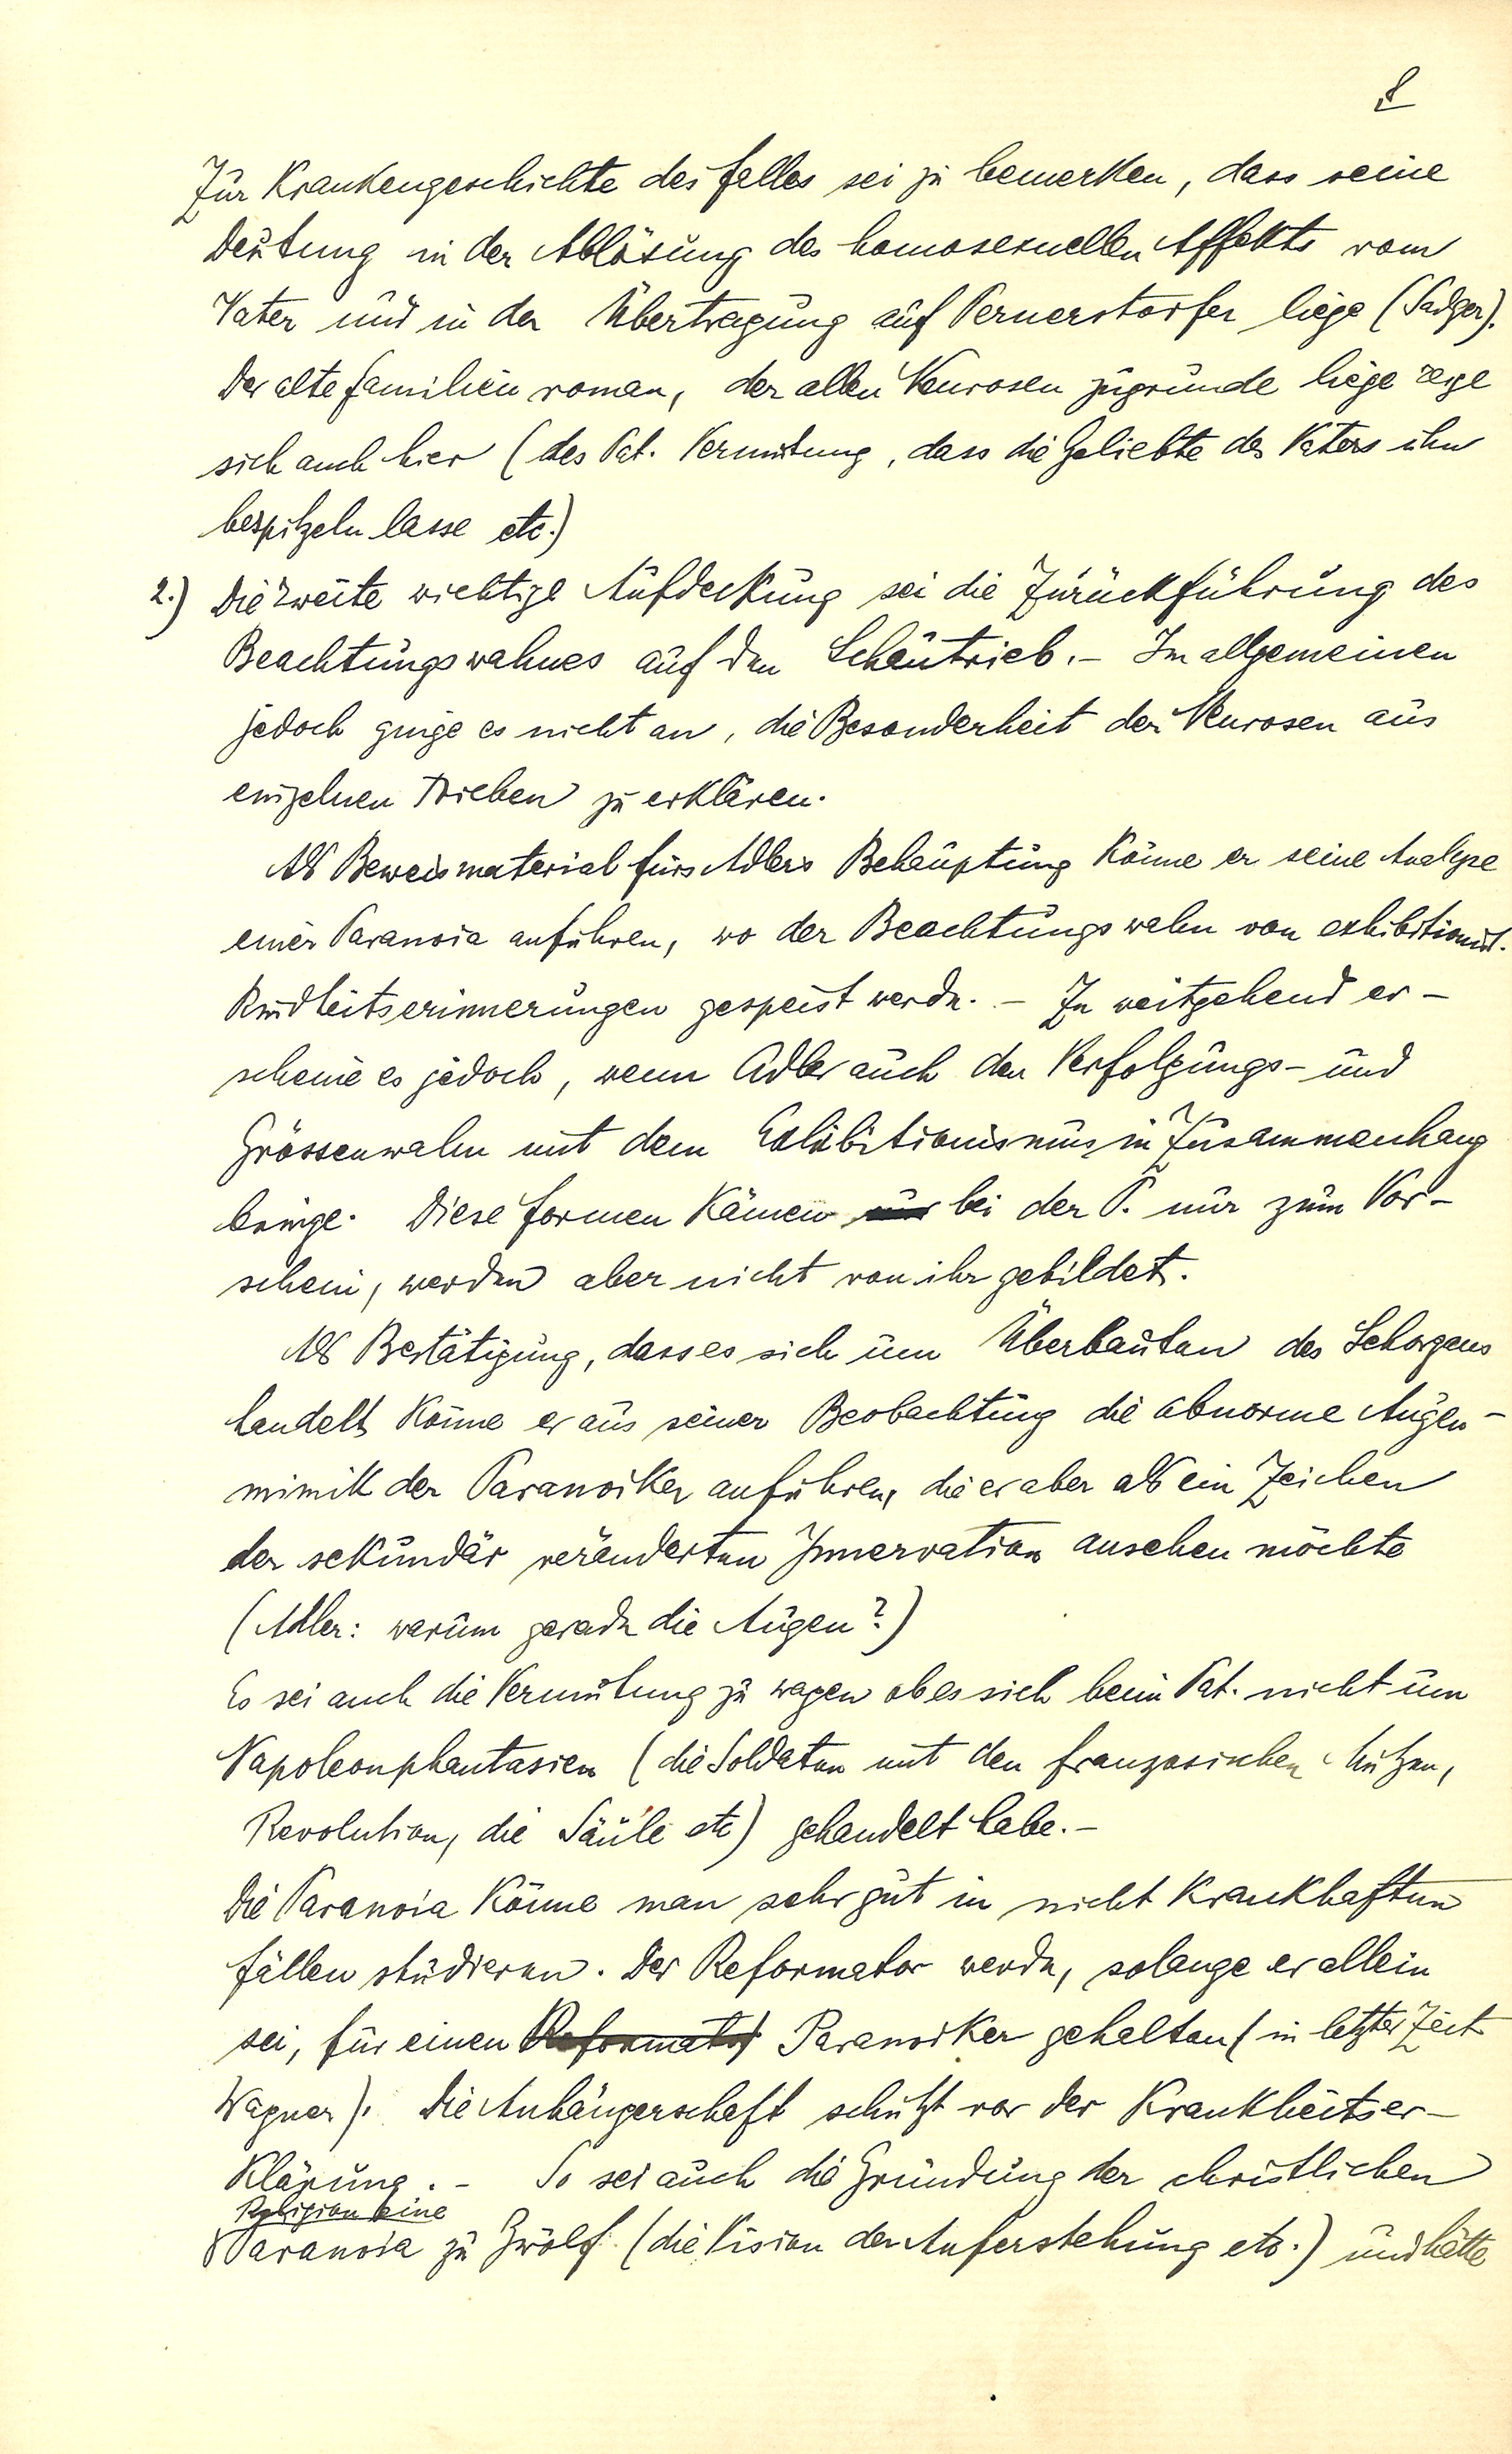 8
Zur Krankengeschichte des Falles sei zu bemerken, dass seine
Deutung in der Ablösung des homosexuellen Affekts vom
Vater und in der Übertragung auf Pernerstorfer liege (Sadger).
Der alte Familienroman, der allen Neurosen zugrunde liege zeige
sich auch hier (des Pat. Vermutung, dass die Geliebte des Vaters ihn
bespitzeln lasse etc.)
2.) Die zweite wichtige Aufdeckung sei die Zurückführung des
Beachtungswahnes auf den Schautrieb. – Im allgemeinen
jedoch ginge es nicht an, die Besonderheit der Neurosen aus
einzelnen Trieben zu erklären.
Als Beweismaterial fürs Adlers Behauptung könne er seine Analyse
einer Paranoia anführen, wo der Beachtungswahn von exhibitionist.
Kindheitserinnerungen gespeist werde. – Zu weitgehend er-
scheine es jedoch, wenn Adler auch den Verfolgungs- und
Grössenwahn mit dem Exhibitionismus in Zusammenhang
bringe. Diese Formen kämen nur bei der P. nur zum Vor-
schein, werden aber nicht von ihr gebildet.
Als Bestätigung, dass es sich um Überbauten des Sehorgans
handelt könne er aus seiner Beobachtung die abnorme Augen-
mimik der Paranoiker anführen, die er aber als ein Zeichen
der sekundär veränderten Innervation ansehen möchte
(Adler: warum gerade die Augen?)
Es sei auch die Vermutung zu wagen ob es sich beim Pat. nicht um
Napoleonphantasien (die Soldaten mit den französischen Mützen,
Revolution, die Säule etc) gehandelt habe. –
Die Paranoia könne man sehr gut in nicht krankhaften
Fällen studieren. Der Reformator werde, solange er allein
sei, für einen Reformator Paranoiker gehalten (in letzter Zeit
Wagner). Die Anhängerschaft schützt vor der Krankheitser-
klärung. – So sei auch die Gründung der christlichen
Religion eine
Paranoia zu Zwölf (die Vision der Auferstehung etc.) und hätte